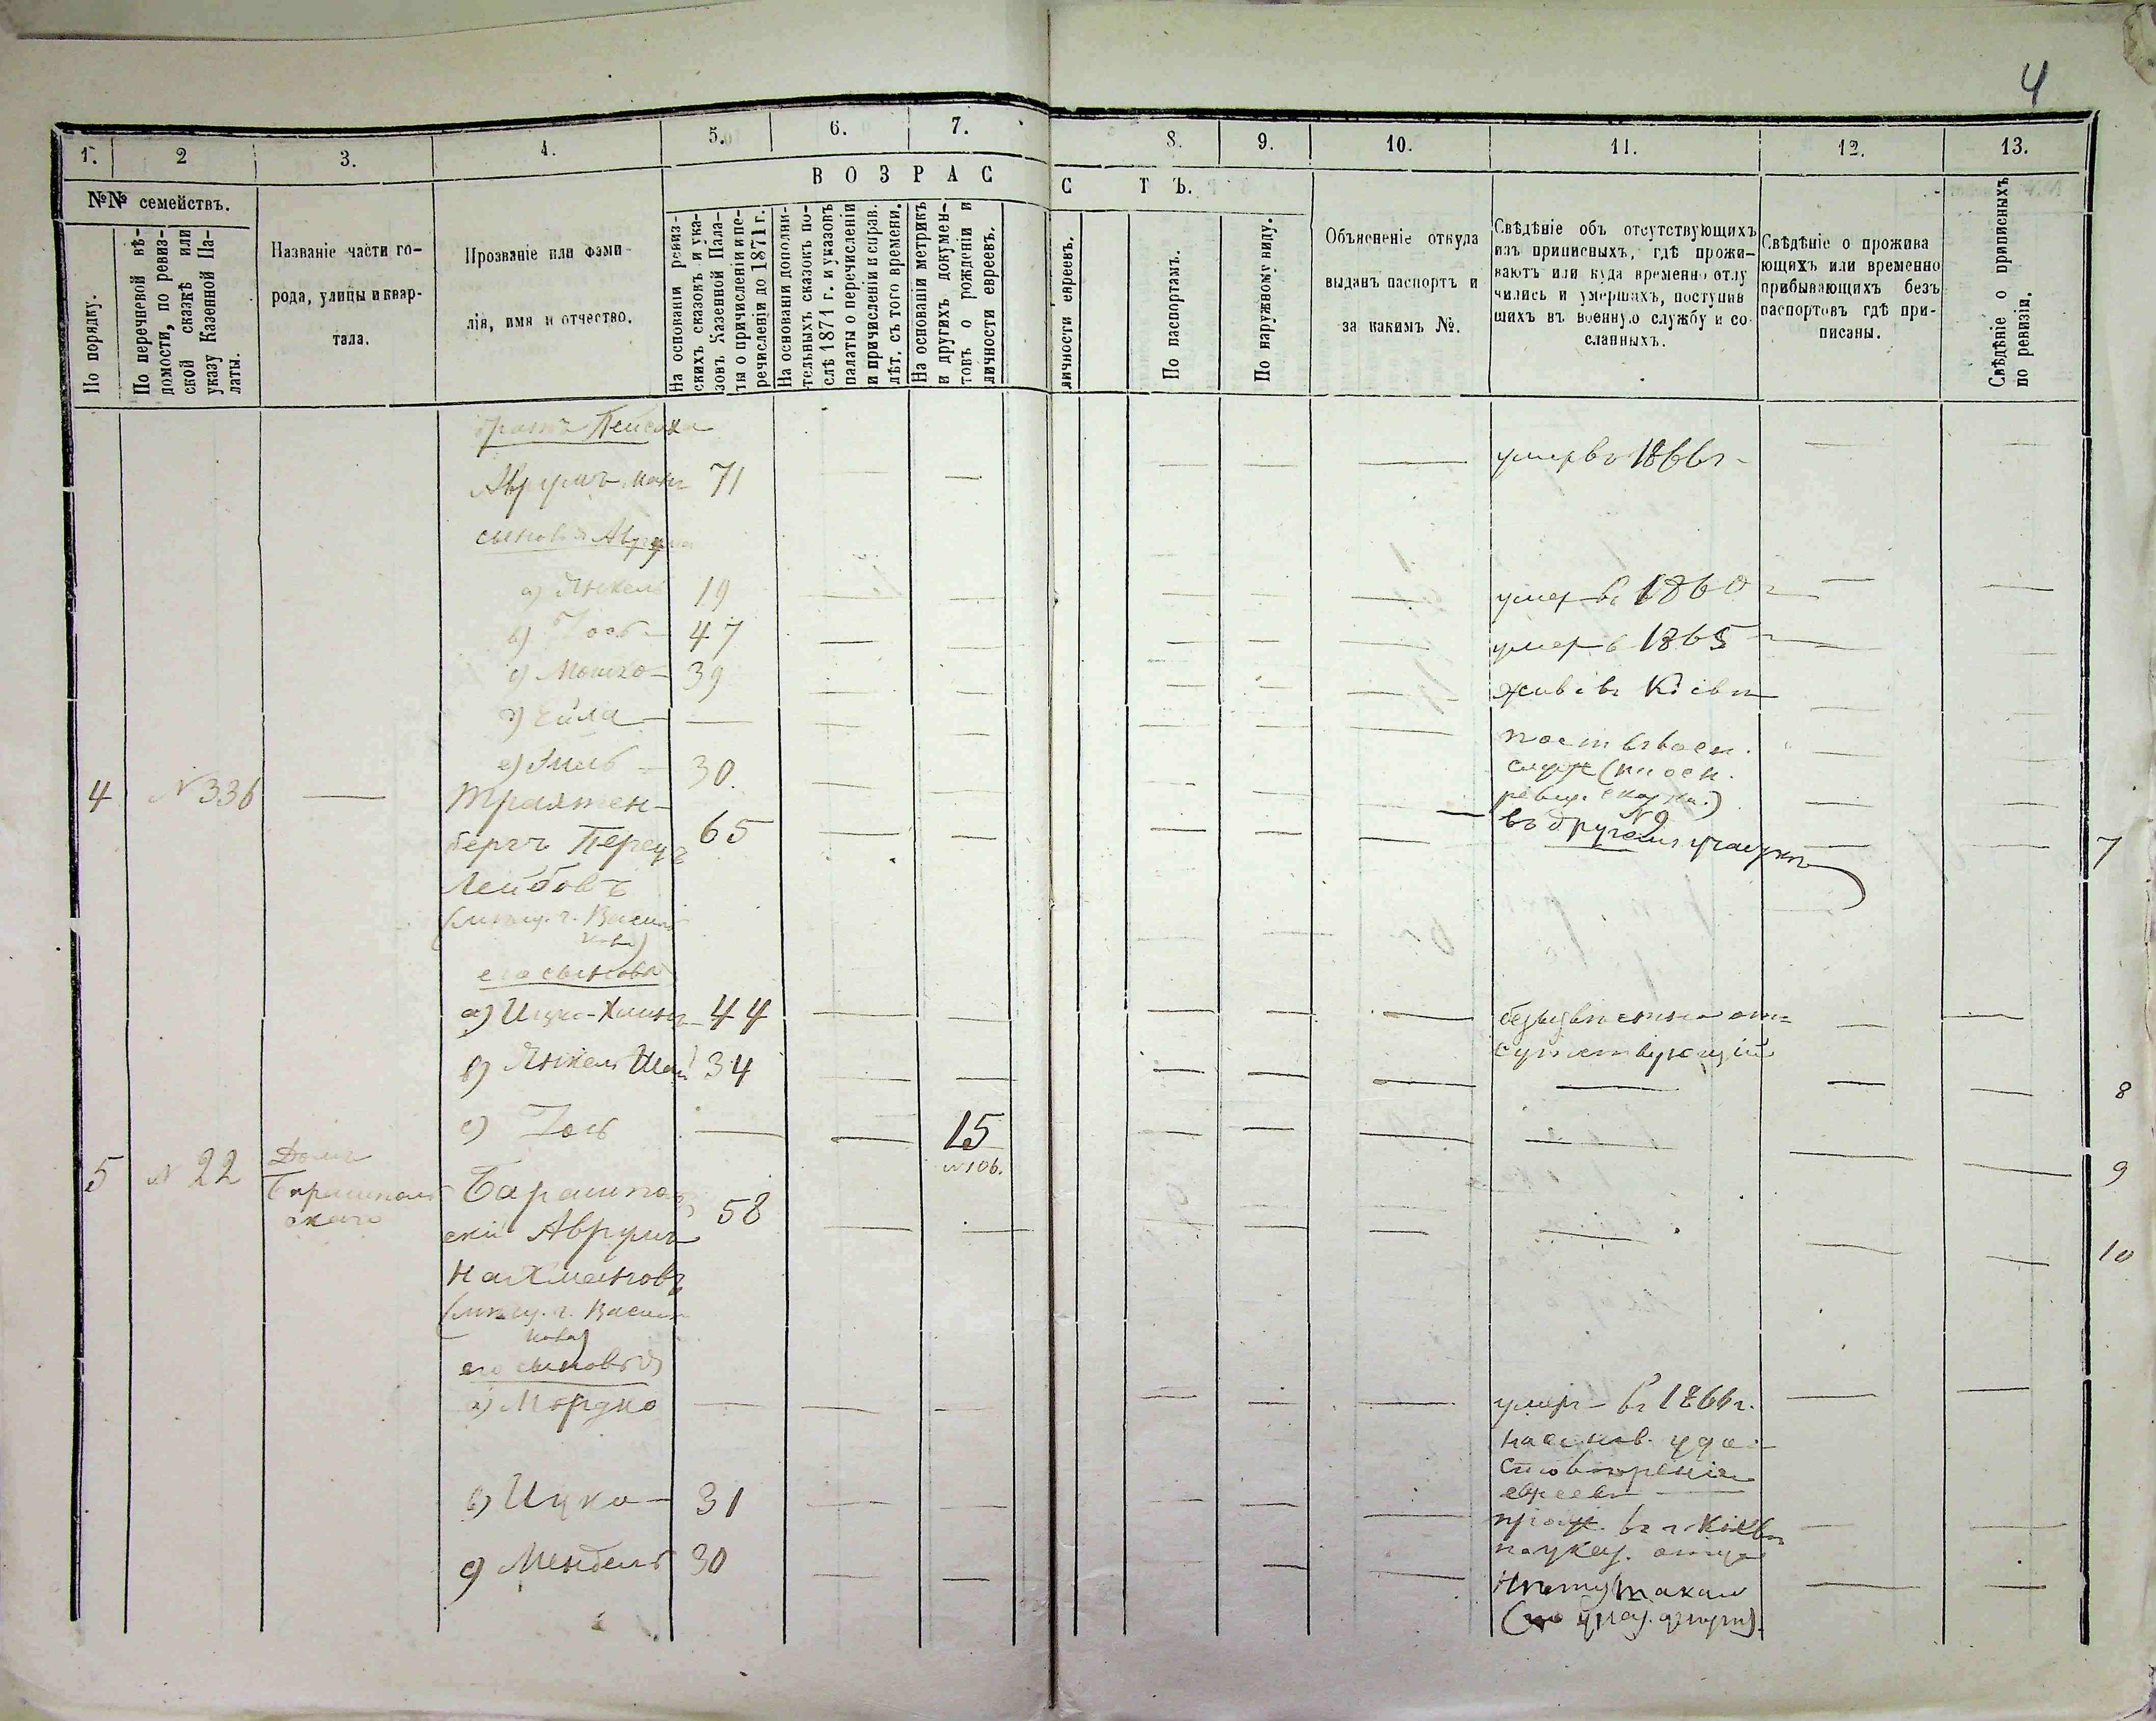 4
1. 2 3. 4. 5. 6. 7. 8. 9. 10. 11. 12. 13.
№№ семействъ.
По порядку.
По перечневой вѣ-
домости, по ревиз-
ской сказкѣ или
указу Казенной Па-
латы.
Названіе части го-
рода, улицы и квар-
тала.
Прозваніе или фами-
лія, имя и отчество.
ВОЗРАС
На основаніи ревиз-
скихъ сказокъ и ука-
зовъ Казенной Пала-
ты о причисленіи и пе-
речисленіи до 1871 г.
На основаніи дополни-
тельныхъ сказокъ по-
слѣ 1871 г. и указовъ
палаты о перечисленіи
и причисленіи и справ.
лѣт. съ того времени.
На основаніи метрикъ
и другихъ докумен-
товъ о рожденіи и
личности евреевъ.
С Т Ъ.
личности евреевъ.
По паспортамъ.
По наружному виду.
Объясненіе откуда
выданъ паспортъ и
за какимъ №.
Свѣдѣніе объ отсутствующихъ
изъ приписныхъ, гдѣ прожи-
ваютъ или куда временно отлу
чились и умершихъ, поступив
шихъ въ военную службу и со
сланныхъ.
Свѣдѣніе о прожива
ющихъ или временно
прибывающихъ безъ
паспортовъ гдѣ при-
писаны.
Свѣдѣніе о приписныхъ
по ревизіи.
братъ Пейсаха
Аврумъ 71 — — — — — умеръ въ 1866 г —
сыновья Аврума
а) Янкель 19 — — — — — умер въ 1860 г — —
в) Іось — 47 — — — — — умер в 1865 г —
с) Мошко — 39 — — — — — жив въ Кіевѣ —
Сійла — — — — — — —
е) 30. — — пост въ воен.
служ (по осн.
ревиз. сказки.)
№ 9
4 № 336 — Трахтен-
бергъ Перецъ 65 — — — — — въ другомъ участкѣ — — 7
Лейбовъ
(мѣщ. г. Василь
кова)
его сыновья
а) Ицко- 44 — — — — — безъизвѣстно от=
сутствующій — —
в) Янкель 34 — — — — — — — — 8
с) Іось — — 15 — — — — — — 9
№ 106.
5 № 22 Домъ
Барашполь
скаго
Барашполь
скій Аврумъ 58 — — — — — — — — 10
Нахмановъ
(мѣщ. г. Василь
кова)
его сыновья
а) Мордко — — — — — — умеръ — въ 1866 г. — —
на основ. удо-
стовѣренія
евреевъ —
в) Ицко — 31 — — — — — прож. въ г. Кіевѣ — —
по указ. отца
с) Мендель 30 — — — — Нѣту такаго — —